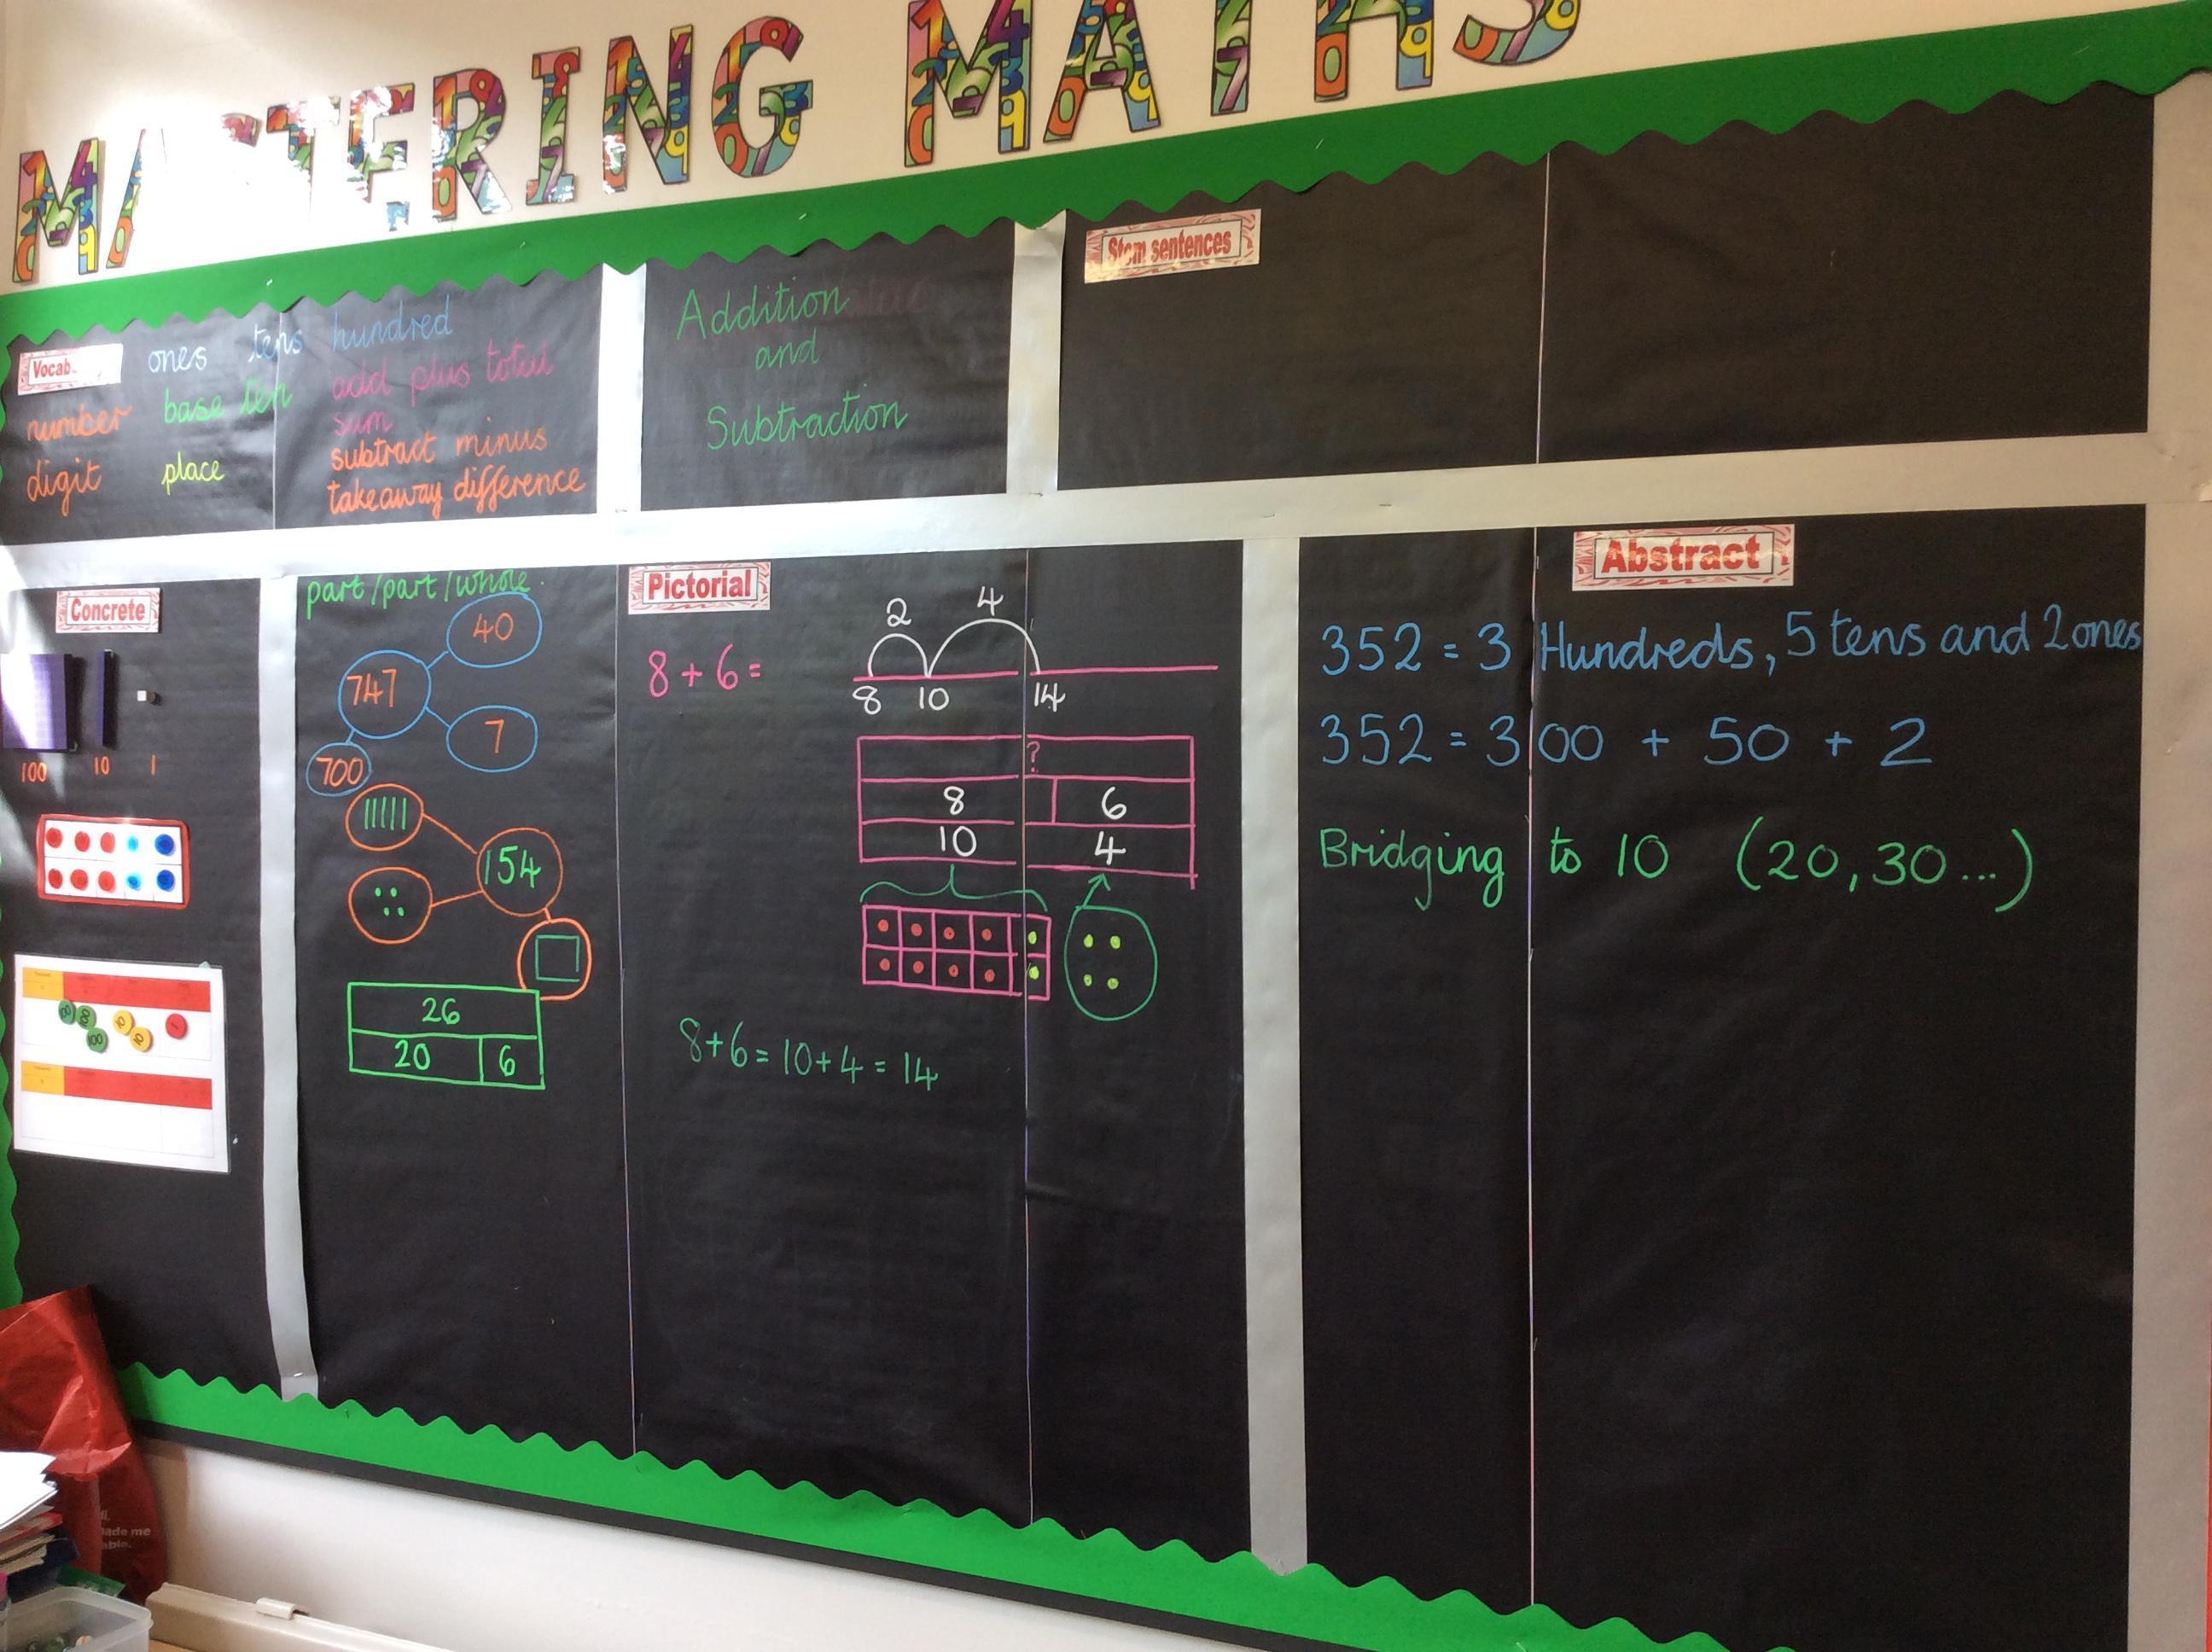 MASTERING MATHS
Vocab
ones tens hundred
number base ten add plus total
sum
digit place subtract minus
takeaway difference
Addition
and
Subtraction
Stem sentences
Concrete
100 10 1
100 100 10
100 10 1
part/part/whole.
40
747
7
700
154
26
20 6
Pictorial
8 + 6 =
2 4
8 10 14
?
8 6
10 4
8+6 = 10+4 = 14
Abstract
352 = 3 Hundreds, 5 tens and 2 ones
352 = 300 + 50 + 2
Bridging to 10 (20, 30...)
ade me